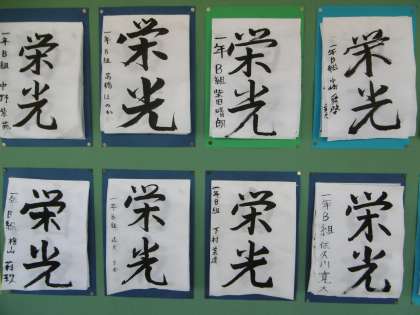 栄光
一年B組 中野
栄光
一年B組 高橋ほのか
栄光
一年B組 柴田晴朗
栄光
一年B組
栄光
一年B組 横山
栄光
一年B組
栄光
一年B組 下村
栄光
一年B組 佐久川寛太